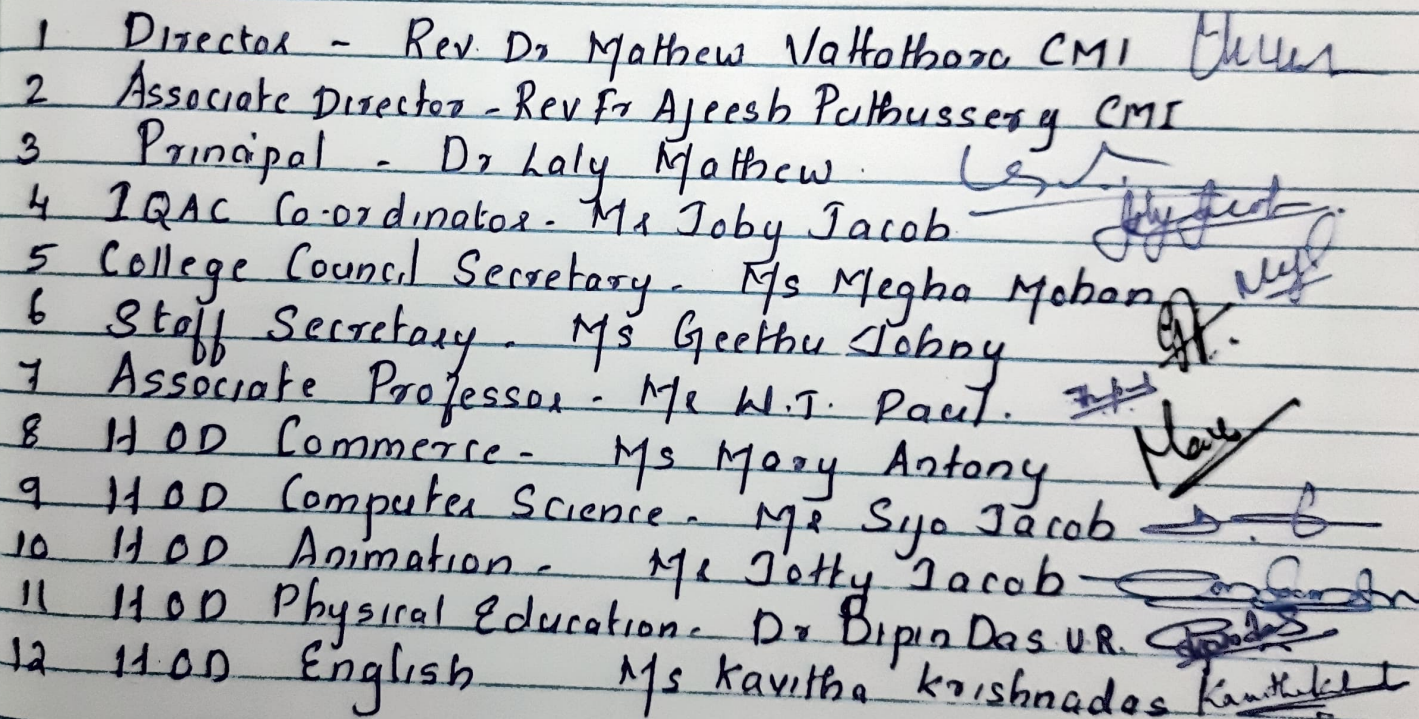 1 Director - Rev. Dr Mathew Vattathara CMI
2 Associate Director - Rev Fr Ajeesh Puthussery CMI
3 Principal - Dr Laly Mathew
4 IQAC Co-ordinator - Mr Joby Jacob
5 College Council Secretary - Ms Megha Mohan
6 Staff Secretary - Ms Geethu Johny
7 Associate Professor - Mr W.T. Paul.
8 HOD Commerce - Ms Mary Antony
9 HOD Computer Science - Mr Siyo Jacob
10 HOD Animation - Mr Jotty Jacob
11 HOD Physical Education - Dr Bipin Das U.R.
12 HOD English Ms Kavitha Krishnadas